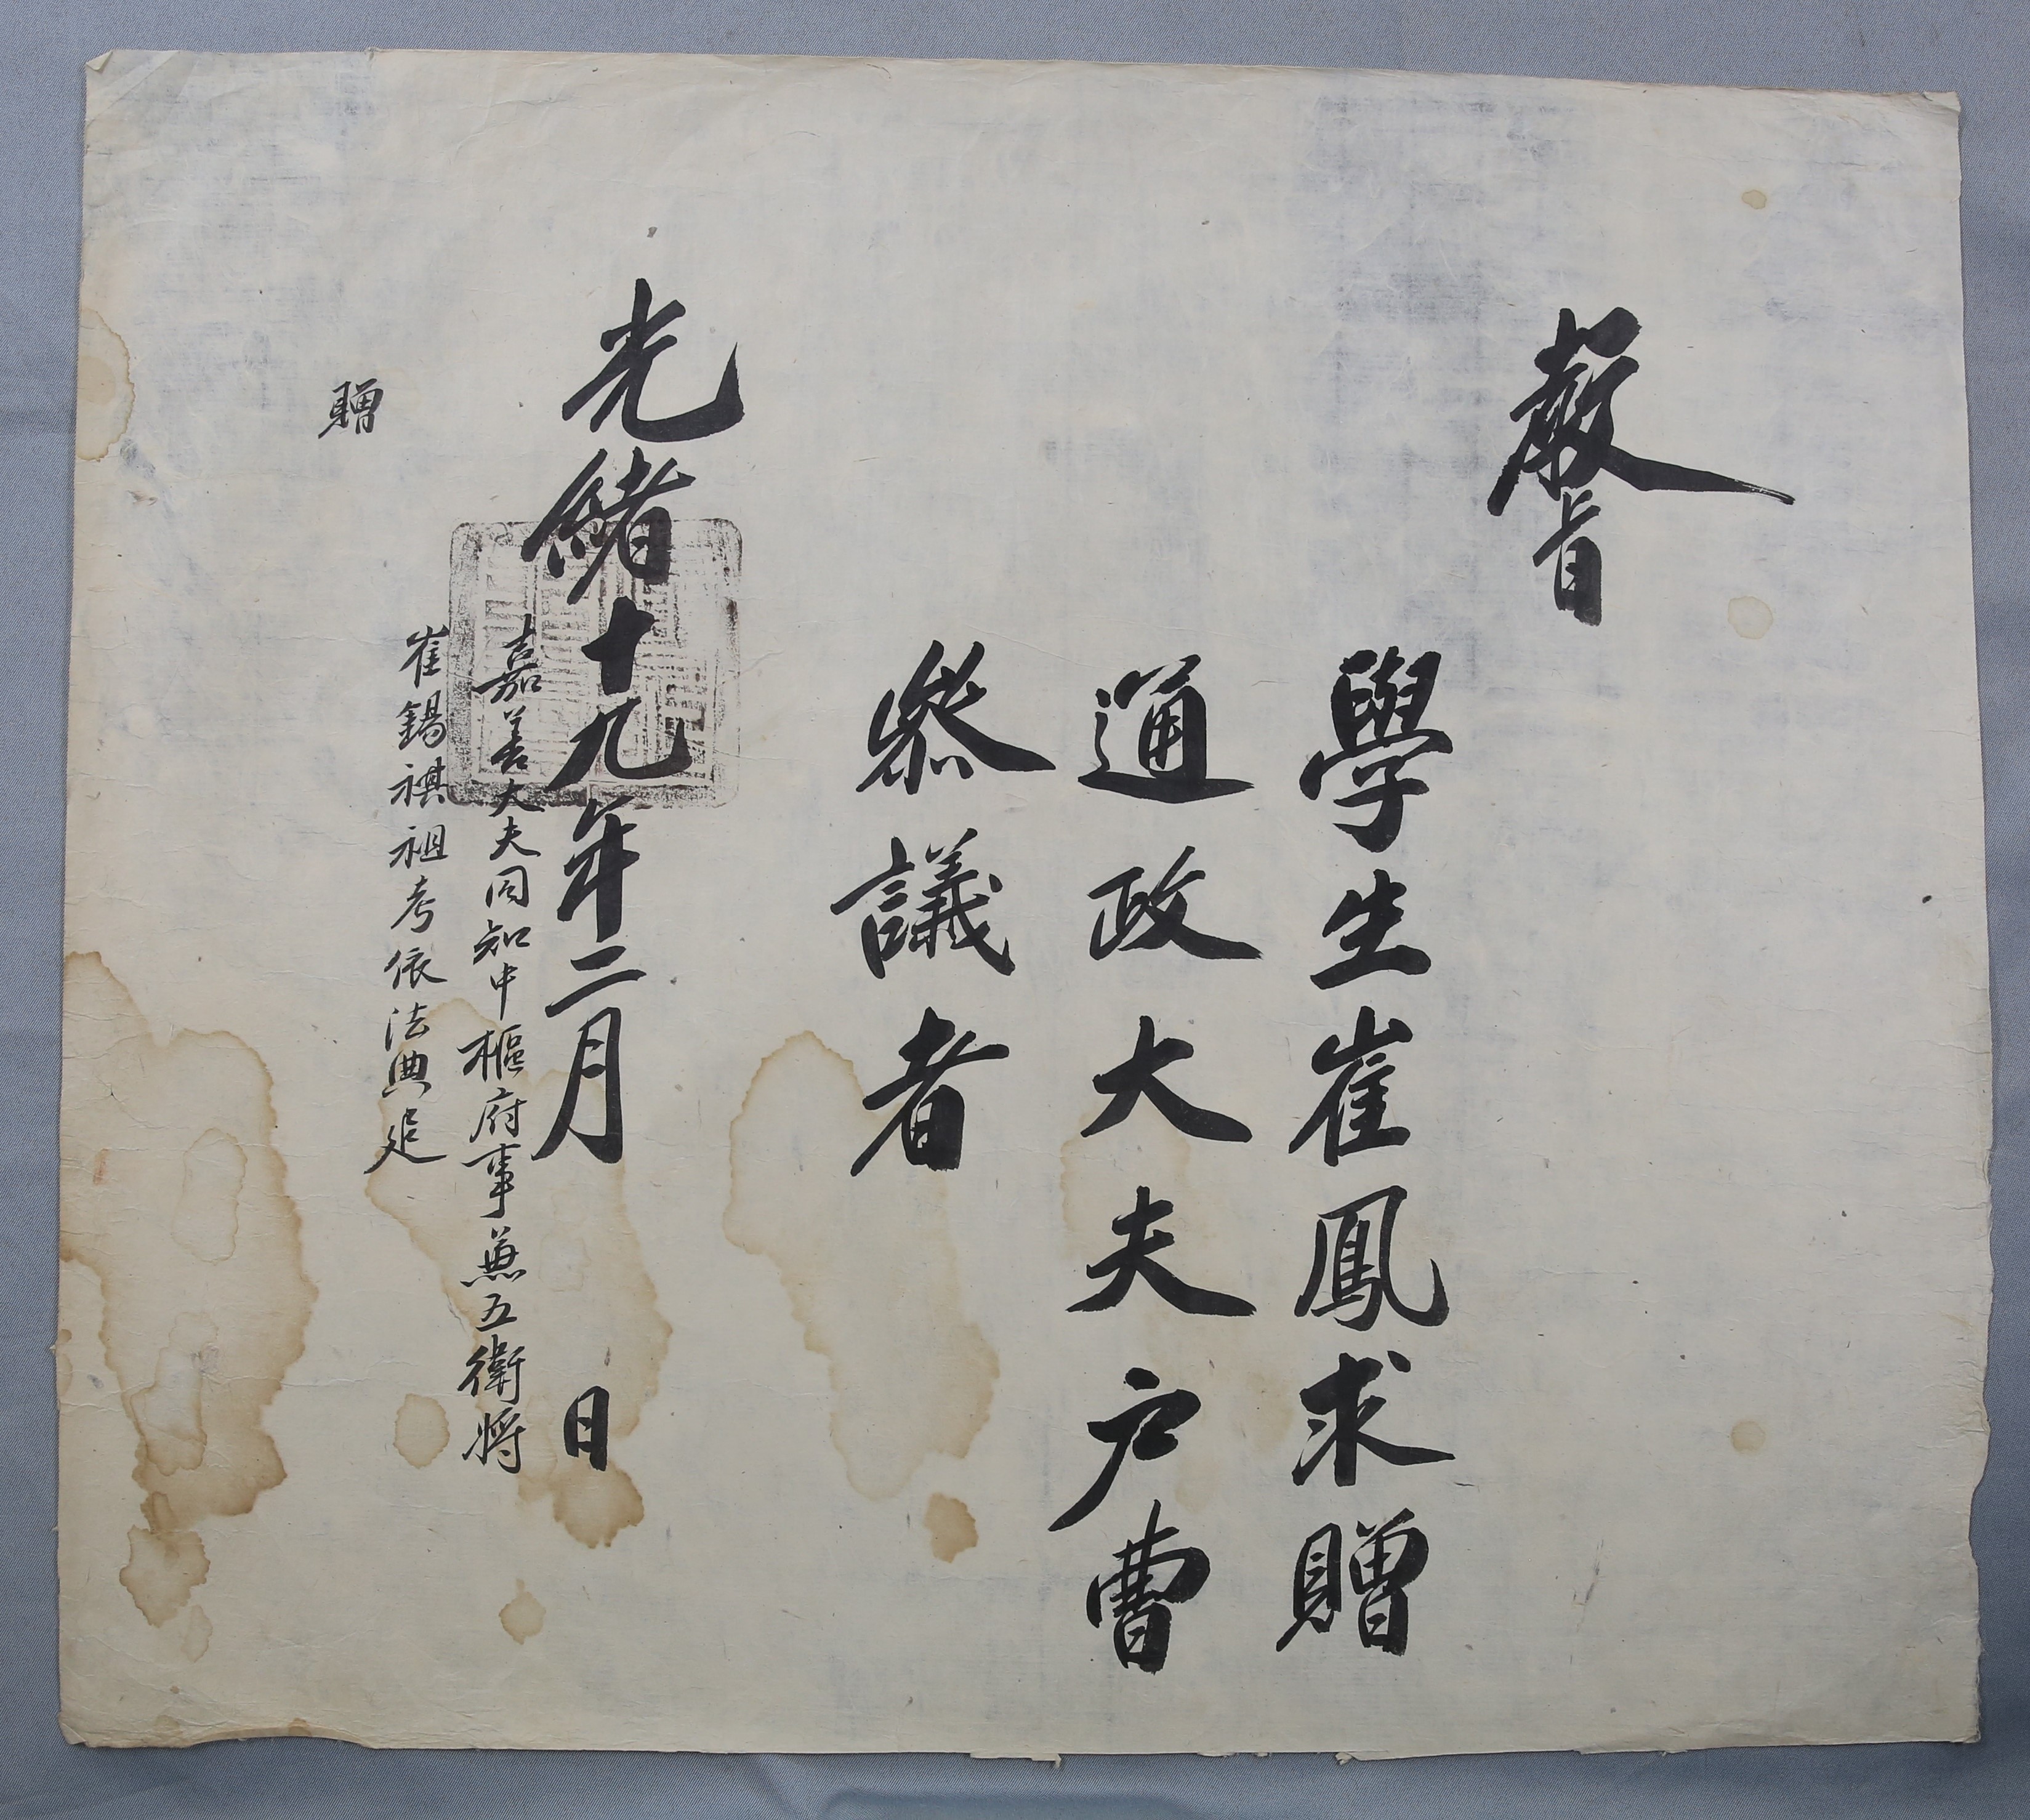 敎旨
學生崔鳳求贈
通政大夫户曹
叅議者
光緖十九年二月 日
嘉善大夫同知中樞府事兼五衛將
崔錫祺祖考依法典追
贈